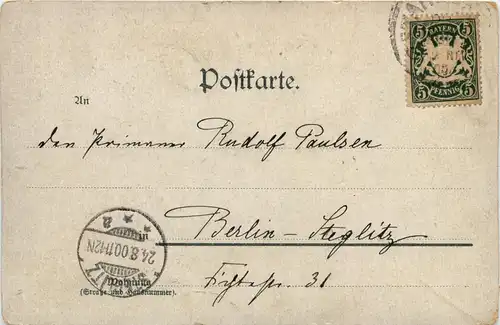 BAYERN
5 5
PFENNIG
Postkarte.
An
den Primaner Rudolf Paulsen
in
Berlin-Steglitz
24.8.00.11-12N
Wohnung
(Straße und Hausnummer).
Fichtestr. 31